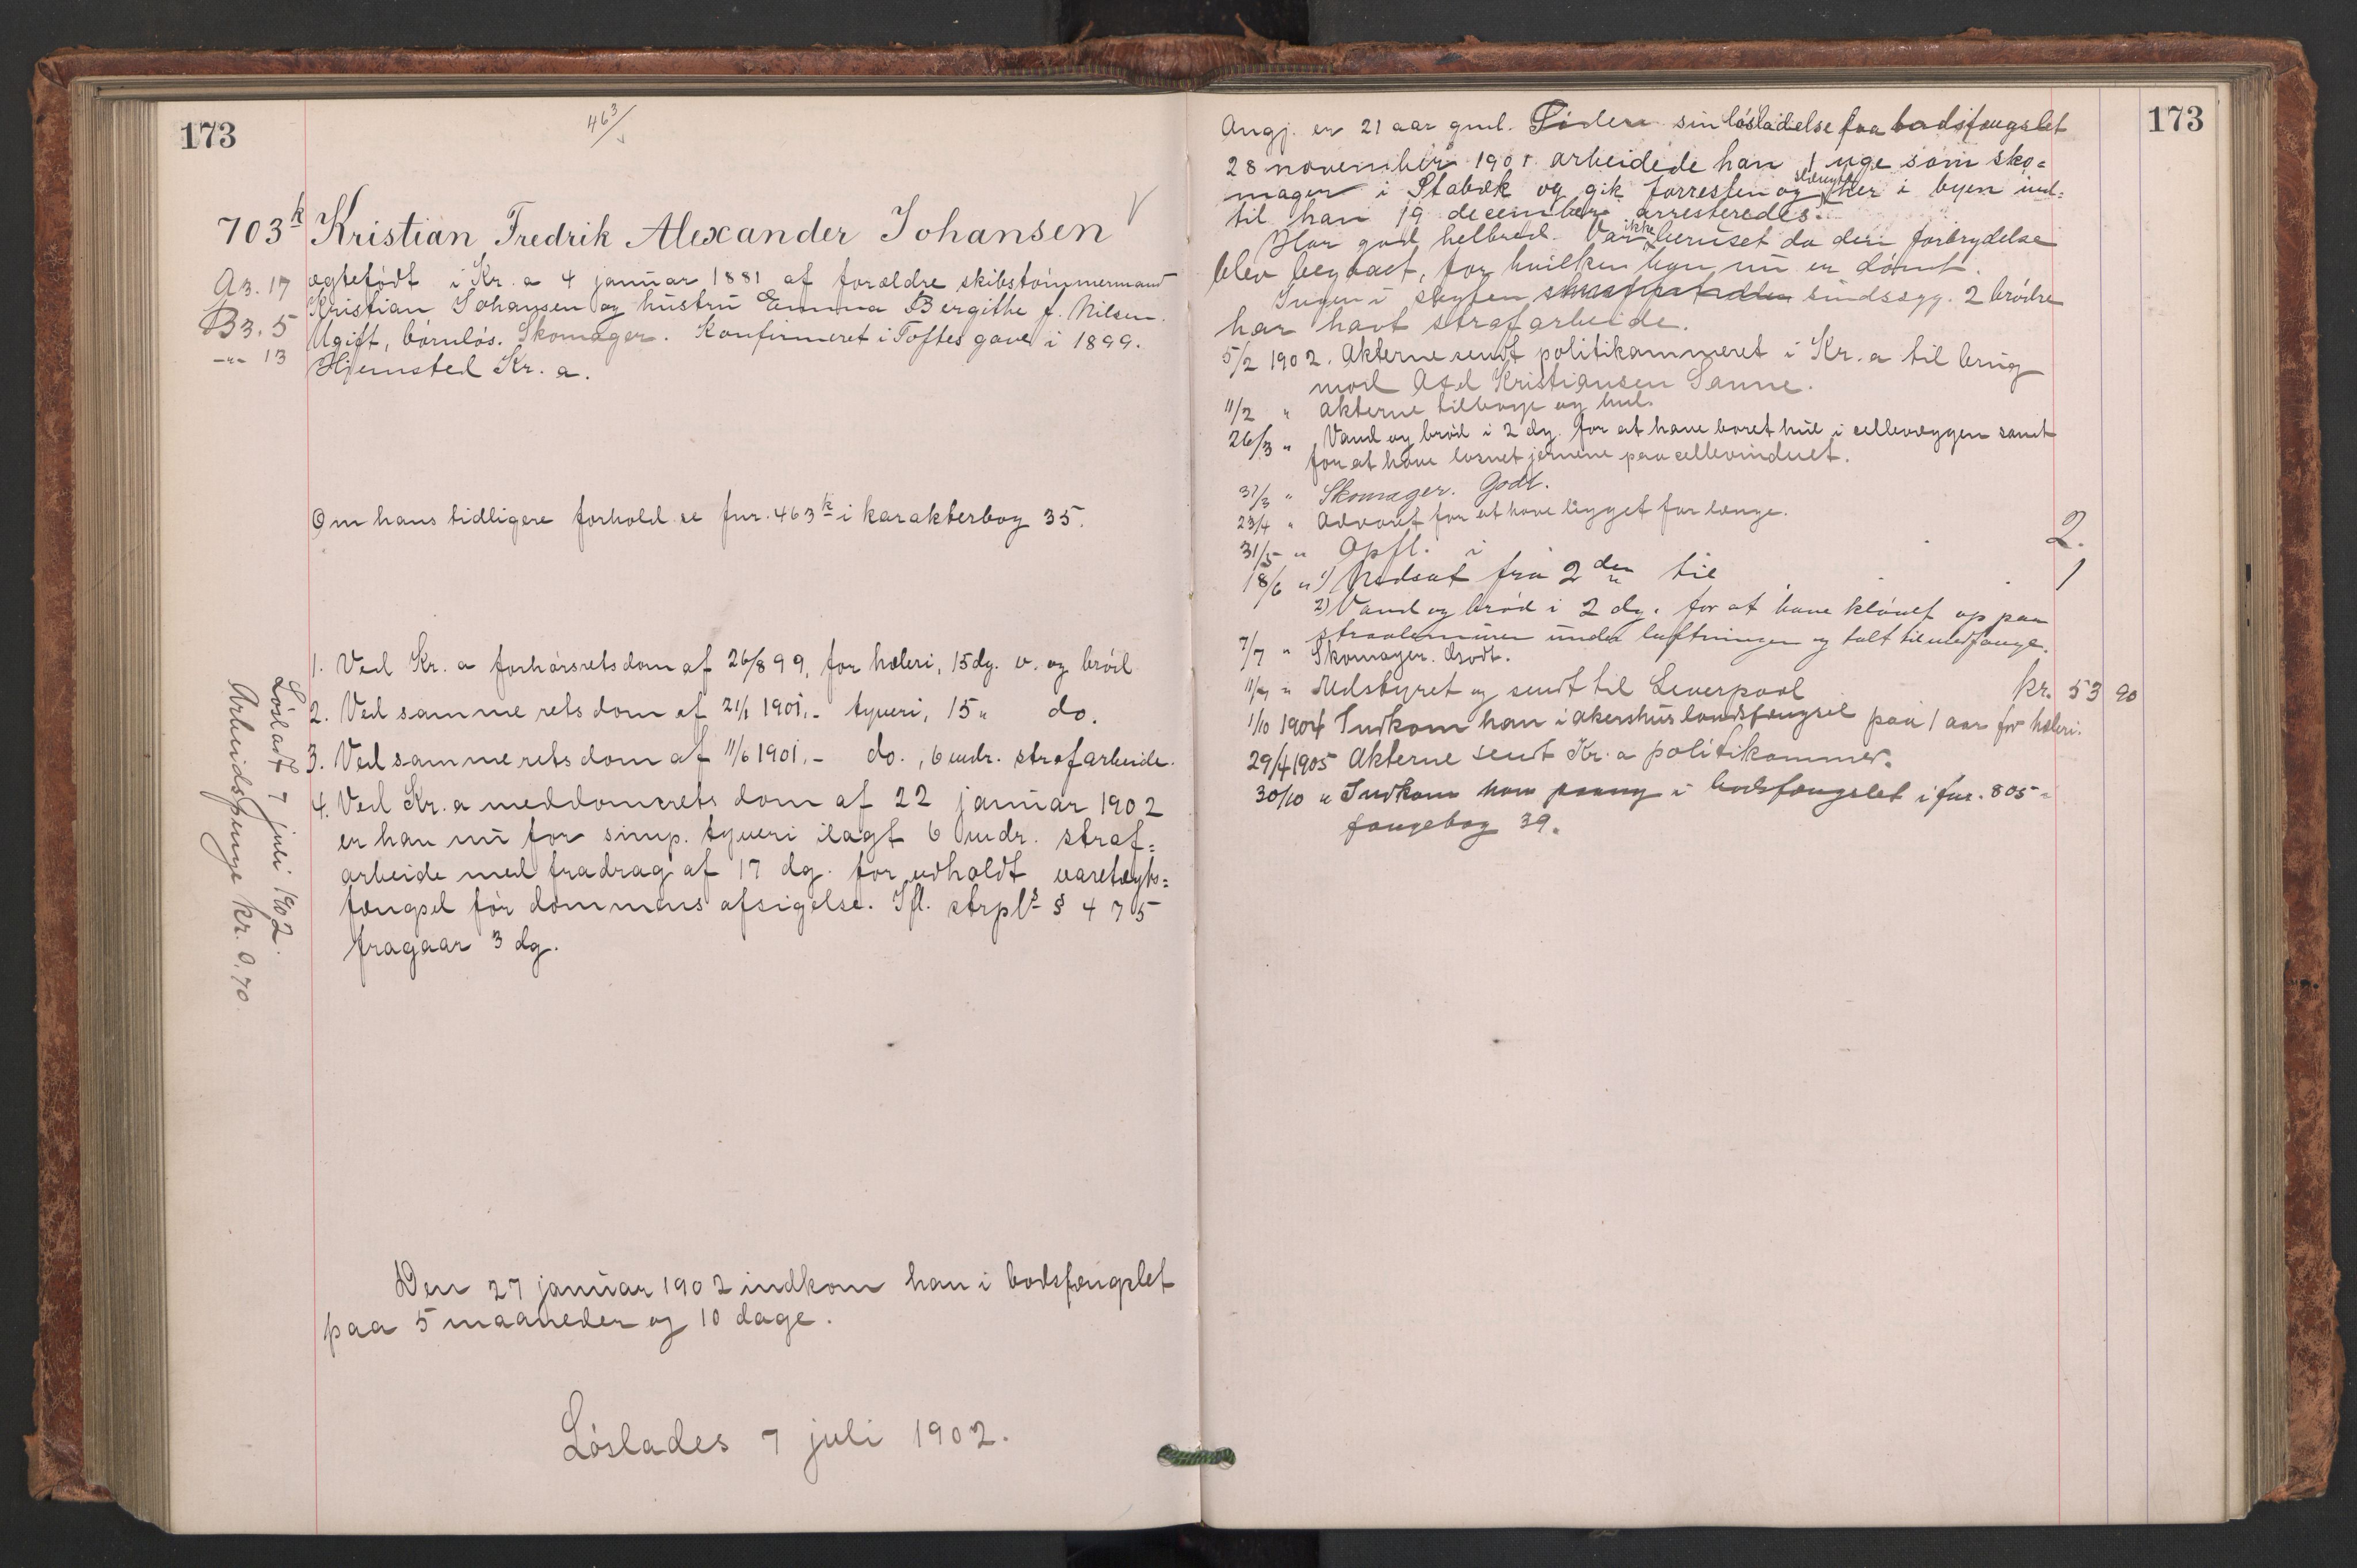 173
463/
703k Kristian Fredrik Alexander Johansen
A3. 17
B3. 5
-"- 13
ægtefødt i Kr.a 4 januar 1881 af forældre skibstømmermand
Kristian Johansen og hustru Emma Bergithe f. Nilsen.
Ugift, børnløs. Skomager. Konfirmeret i Toftes gave i 1899.
Hjemsted Kr.a.
Om hans tidligere forhold se fnr. 463k i karakterbog 35.
1. Ved Kr.a forhørsretsdom af 26/8 99, for hæleri, 15 dg. v. og brød
2. Ved samme rets dom af 21/1 1901, - tyveri, 15 " do.
3. Ved samme rets dom af 11/6 1901, - do., 6 mdr. strafarbeide.
4. Ved Kr.a meddomsrets dom af 22 januar 1902
er han nu for simp. tyveri ilagt 6 mdr. straf=
arbeide med fradrag af 17 dg. for udholdt varetægts=
fængsel før dommens afsigelse. Ifl. strpls § 475
fragaar 3 dg.
Løsladt 7 juli 1902.
Arbeidspenge kr. 0,70
Den 27 januar 1902 indkom han i bodsfængslet
paa 5 maaneder og 10 dage.
Løslades 7 juli 1902.
173
Angj. er 21 aar gml. Siden sin løsladelse fra bodsfængslet
28 november 1901 arbeidede han 1 uge som sko=
mager i Stabæk og gik forresten og slængte her i byen ind=
til han 19 december arresteredes.
Har god helbred. Var ikke beruset da den forbrydelse
blev begaaet, for hvilken han nu er dømt.
Ingen i slegten sindssyg. 2 brødre
har havt strafarbeide.
5/2 1902. Akterne sendt politikammeret i Kr.a til brug
mod Axel Kristiansen Sanne.
11/2 " Akterne tilbage og hul.
26/3 " Vand og brød i 2 dg. for at have boret hul i cellevæggen samt
for at have løsnet jernene paa cellevinduet.
31/3 " Skomager. Godt.
23/4 " Advaret for at have ligget for længe.
31/5 " Opfl. i 2.
18/6 " 1) Nedsat fra 2den til 1
2) Vand og brød i 2 dg. for at have kløvet op paa
straalemuren under luftningen og talt til medfange.
7/7 " Skomager. Godt.
11/7 " Udstyret og sendt til Liverpool kr. 53 90
1/10 1904 Indkom han i akershus landsfængsel paa 1 aar for hæleri.
29/4 1905 Akterne sendt Kr.a politikammer.
30/10 " Indkom han paany i bodsfængslet i fnr. 805 -
fangebog 39.